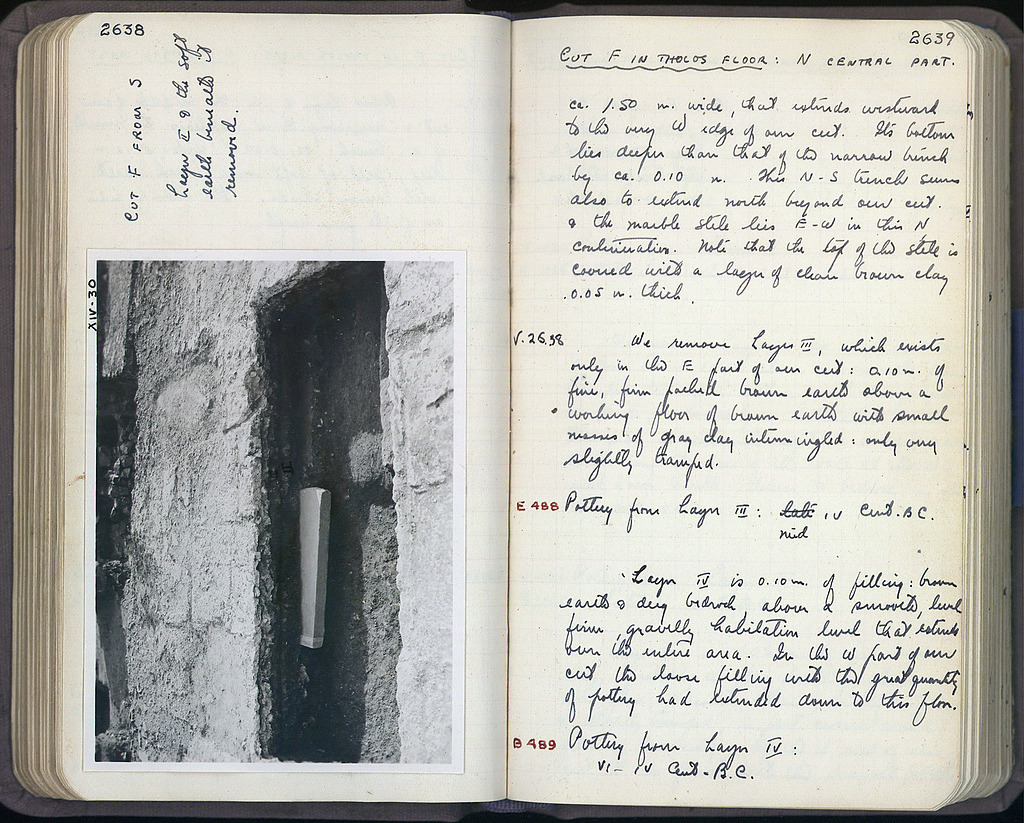 2638
CUT F FROM S
Layer II & the soft
earth beneath it
removed.
XIV-30
2639
CUT F IN THOLOS FLOOR: N CENTRAL PART.
ca. 1.50 m. wide, that extends westward
to the very W edge of our cut. Its bottom
lies deeper than that of the narrow trench
by ca. 0.10 m. This N-S trench seems
also to extend north beyond our cut.
& the marble stele lies E-W in this N
continuation. Note that the top of the stele is
covered with a layer of clean brown clay
0.05 m. thick.
V.26.38
We remove Layer III, which exists
only in the E part of our cut: 0.10 m. of
fine, firm packed brown earth above a
working floor of brown earth with small
masses of gray clay intermingled: only very
slightly tramped.
E 488 Pottery from Layer III: late IV Cent. B.C.
mid
Layer IV is 0.10 m. of filling: brown
earth & dug bedrock, above a smooth, level
firm, gravelly habitation level that extends
over the entire area. In the W part of our
cut the loose filling with the great quantity
of pottery had extended down to this floor.
B 489 Pottery from Layer IV:
VI - IV Cent. B.C.